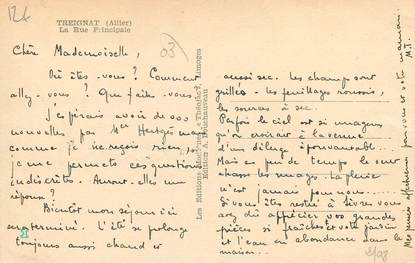 12k
TREIGNAT (Allier)
La Rue Principale
03
Chère Mademoiselle,
Où êtes-vous? Comment
allez-vous? Que faites-vous?
J'espérais avoir de vos
nouvelles par Mlle
comme je ne reçois rien,
je me permets ces questions
indiscrètes. Auront-elles une
réponse?
Bientôt mon séjour ici
sera terminé. L'été se prolonge
toujours aussi chaud et
21
Les Editions
Limoges
Edition A.
aussi sec. Les champs sont
grillés - les feuillages roussis,
les sources à sec.
Parfois le ciel est si nuageux
qu'on croirait à la venue
d'un déluge épouvantable...
Mais en peu de temps le vent
chasse les nuages. La pluie
n'est jamais pour nous.
Si vous êtes restée à Livres vous
avez dû apprécier vos grandes
pièces si fraîches et votre jardin
et l'eau en abondance dans la
maison...
Mes pensées affectueuses pour vous et votre maman.
MJ.